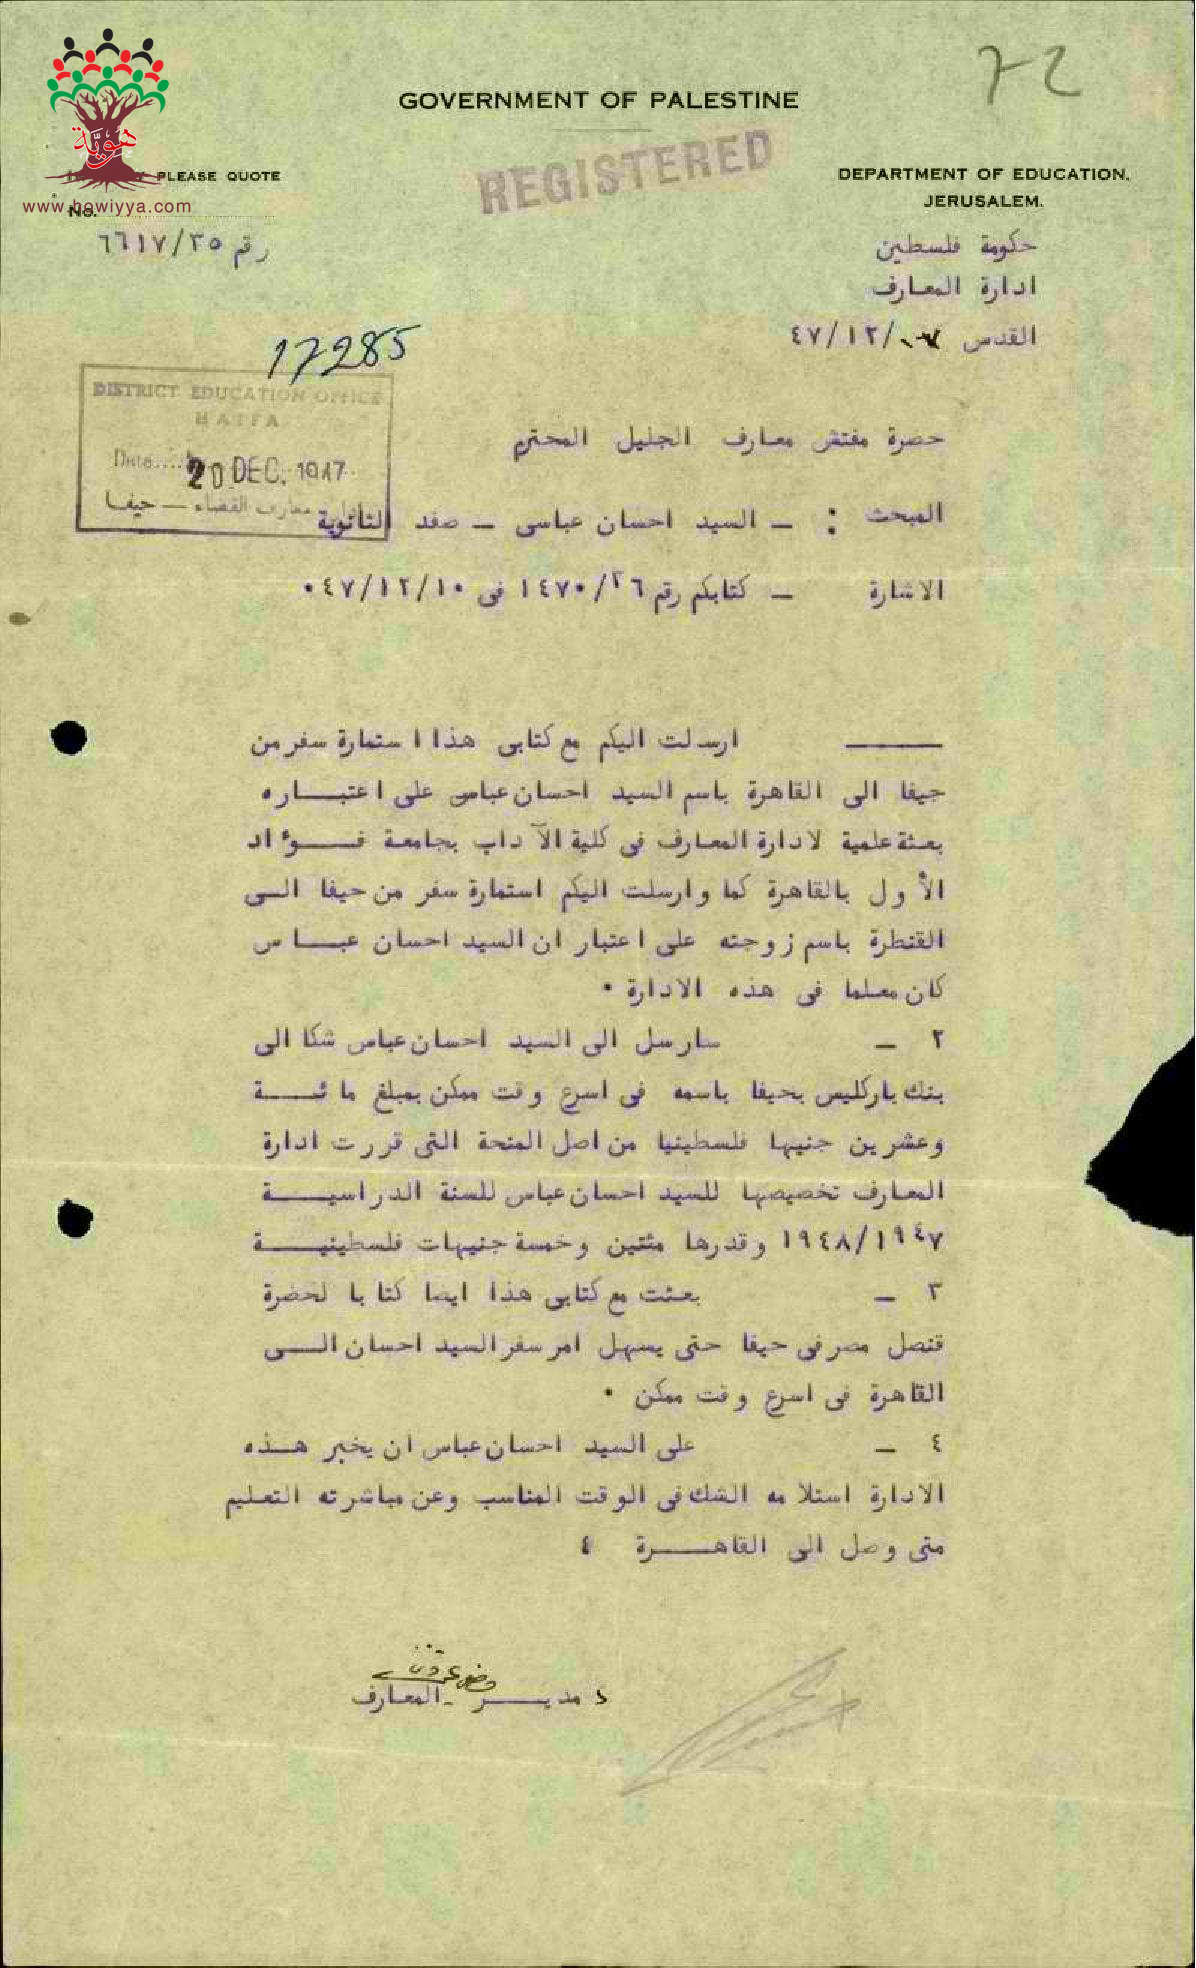 72
GOVERNMENT OF PALESTINE
REGISTERED
هوية
PLEASE QUOTE
www.howiyya.com
No.
DEPARTMENT OF EDUCATION,
JERUSALEM.
رقم ٦٦١٧/٣٥
حكومة فلسطين
ادارة المعارف
القدس /١٢/٤٧
17285
DISTRICT EDUCATION OFFICE
HAIFA
Date
20 DEC. 1947
معارف القضاء — حيفا
حضرة مفتش معارف الجليل المحترم
المبحث : — السيد احسان عباسى — صفد الثانوية
الاشارة — كتابكم رقم ١٤٧٠/٢٦ فى ٤٧/١٢/١٠٠
ارسلت اليكم مع كتابى هذا استمارة سفر من
حيفا الى القاهرة باسم السيد احسان عباس على اعتبـــاره
بعثة علمية لادارة المعارف فى كلية الآداب بجامعة فـــؤاد
الأول بالقاهرة كما وارسلت اليكم استمارة سفر من حيفا الــى
القنطرة باسم زوجته على اعتبار ان السيد احسان عبــاس
كان معلما فى هذه الادارة ٠
٢ — سارسل الى السيد احسان عباس شكا الى
بنك باركليس بحيفا باسمه فى اسرع وقت ممكن بمبلغ مائـــة
وعشرين جنيها فلسطينيا من اصل المنحة التى قررت ادارة
المعارف تخصيصها للسيد احسان عباس للسنة الدراسيـــة
١٩٤٨/١٩٤٧ وقدرها مئتين وخمسة جنيهات فلسطينيـــة
٣ — بعثت مع كتابى هذا ايضا كتابا لحضرة
قنصل مصر فى حيفا حتى يسهل امر سفر السيد احسان الــى
القاهرة فى اسرع وقت ممكن ٠
٤ — على السيد احسان عباس ان يخبر هــذه
الادارة استلامه الشك فى الوقت المناسب وعن مباشرته التعليم
متى وصل الى القاهـــرة ٤
مديـــر المعارف